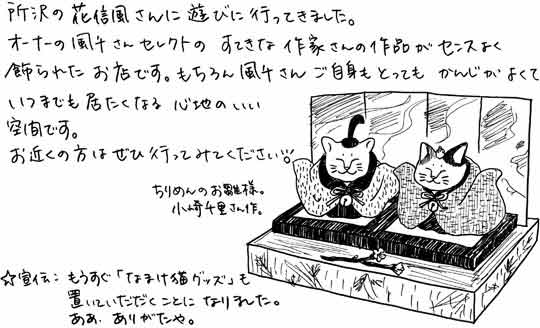 所沢の花信風さんに遊びに行ってきました。
オーナーの風千さんセレクトの すてきな作家さんの作品がセンスよく
飾られたお店です。もちろん風千さんご自身もとっても かんじがよくて
いつまでも居たくなる 心地のいい
空間です。
お近くの方はぜひ行ってみてください!!
ちりめんのお雛様。
小崎千里さん作。
☆宣伝:もうすぐ「なまけ猫グッズ」も
置いていただくことに なりました。
ああ、ありがたや。